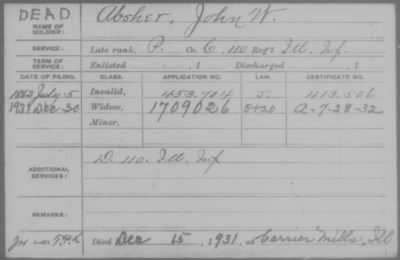 DEAD.
NAME OF SOLDIER: Absher, John W.
SERVICE: Late rank, P. Co. C, 110 Reg't Ill. Inf
TERM OF SERVICE: Enlisted , 1 Discharged , 1
DATE OF FILING. CLASS. APPLICATION NO. LAW. CERTIFICATE NO.
1882 July 5 Invalid, 453.704 J. 413.506
1931 Dec 30 Widow, 1709026 5+20 A-7-28-32
Minor,
ADDITIONAL SERVICES: D. 110. Ill. Inf
REMARKS:
Died Dec 15, 1931, at Carrier Mills, Ill